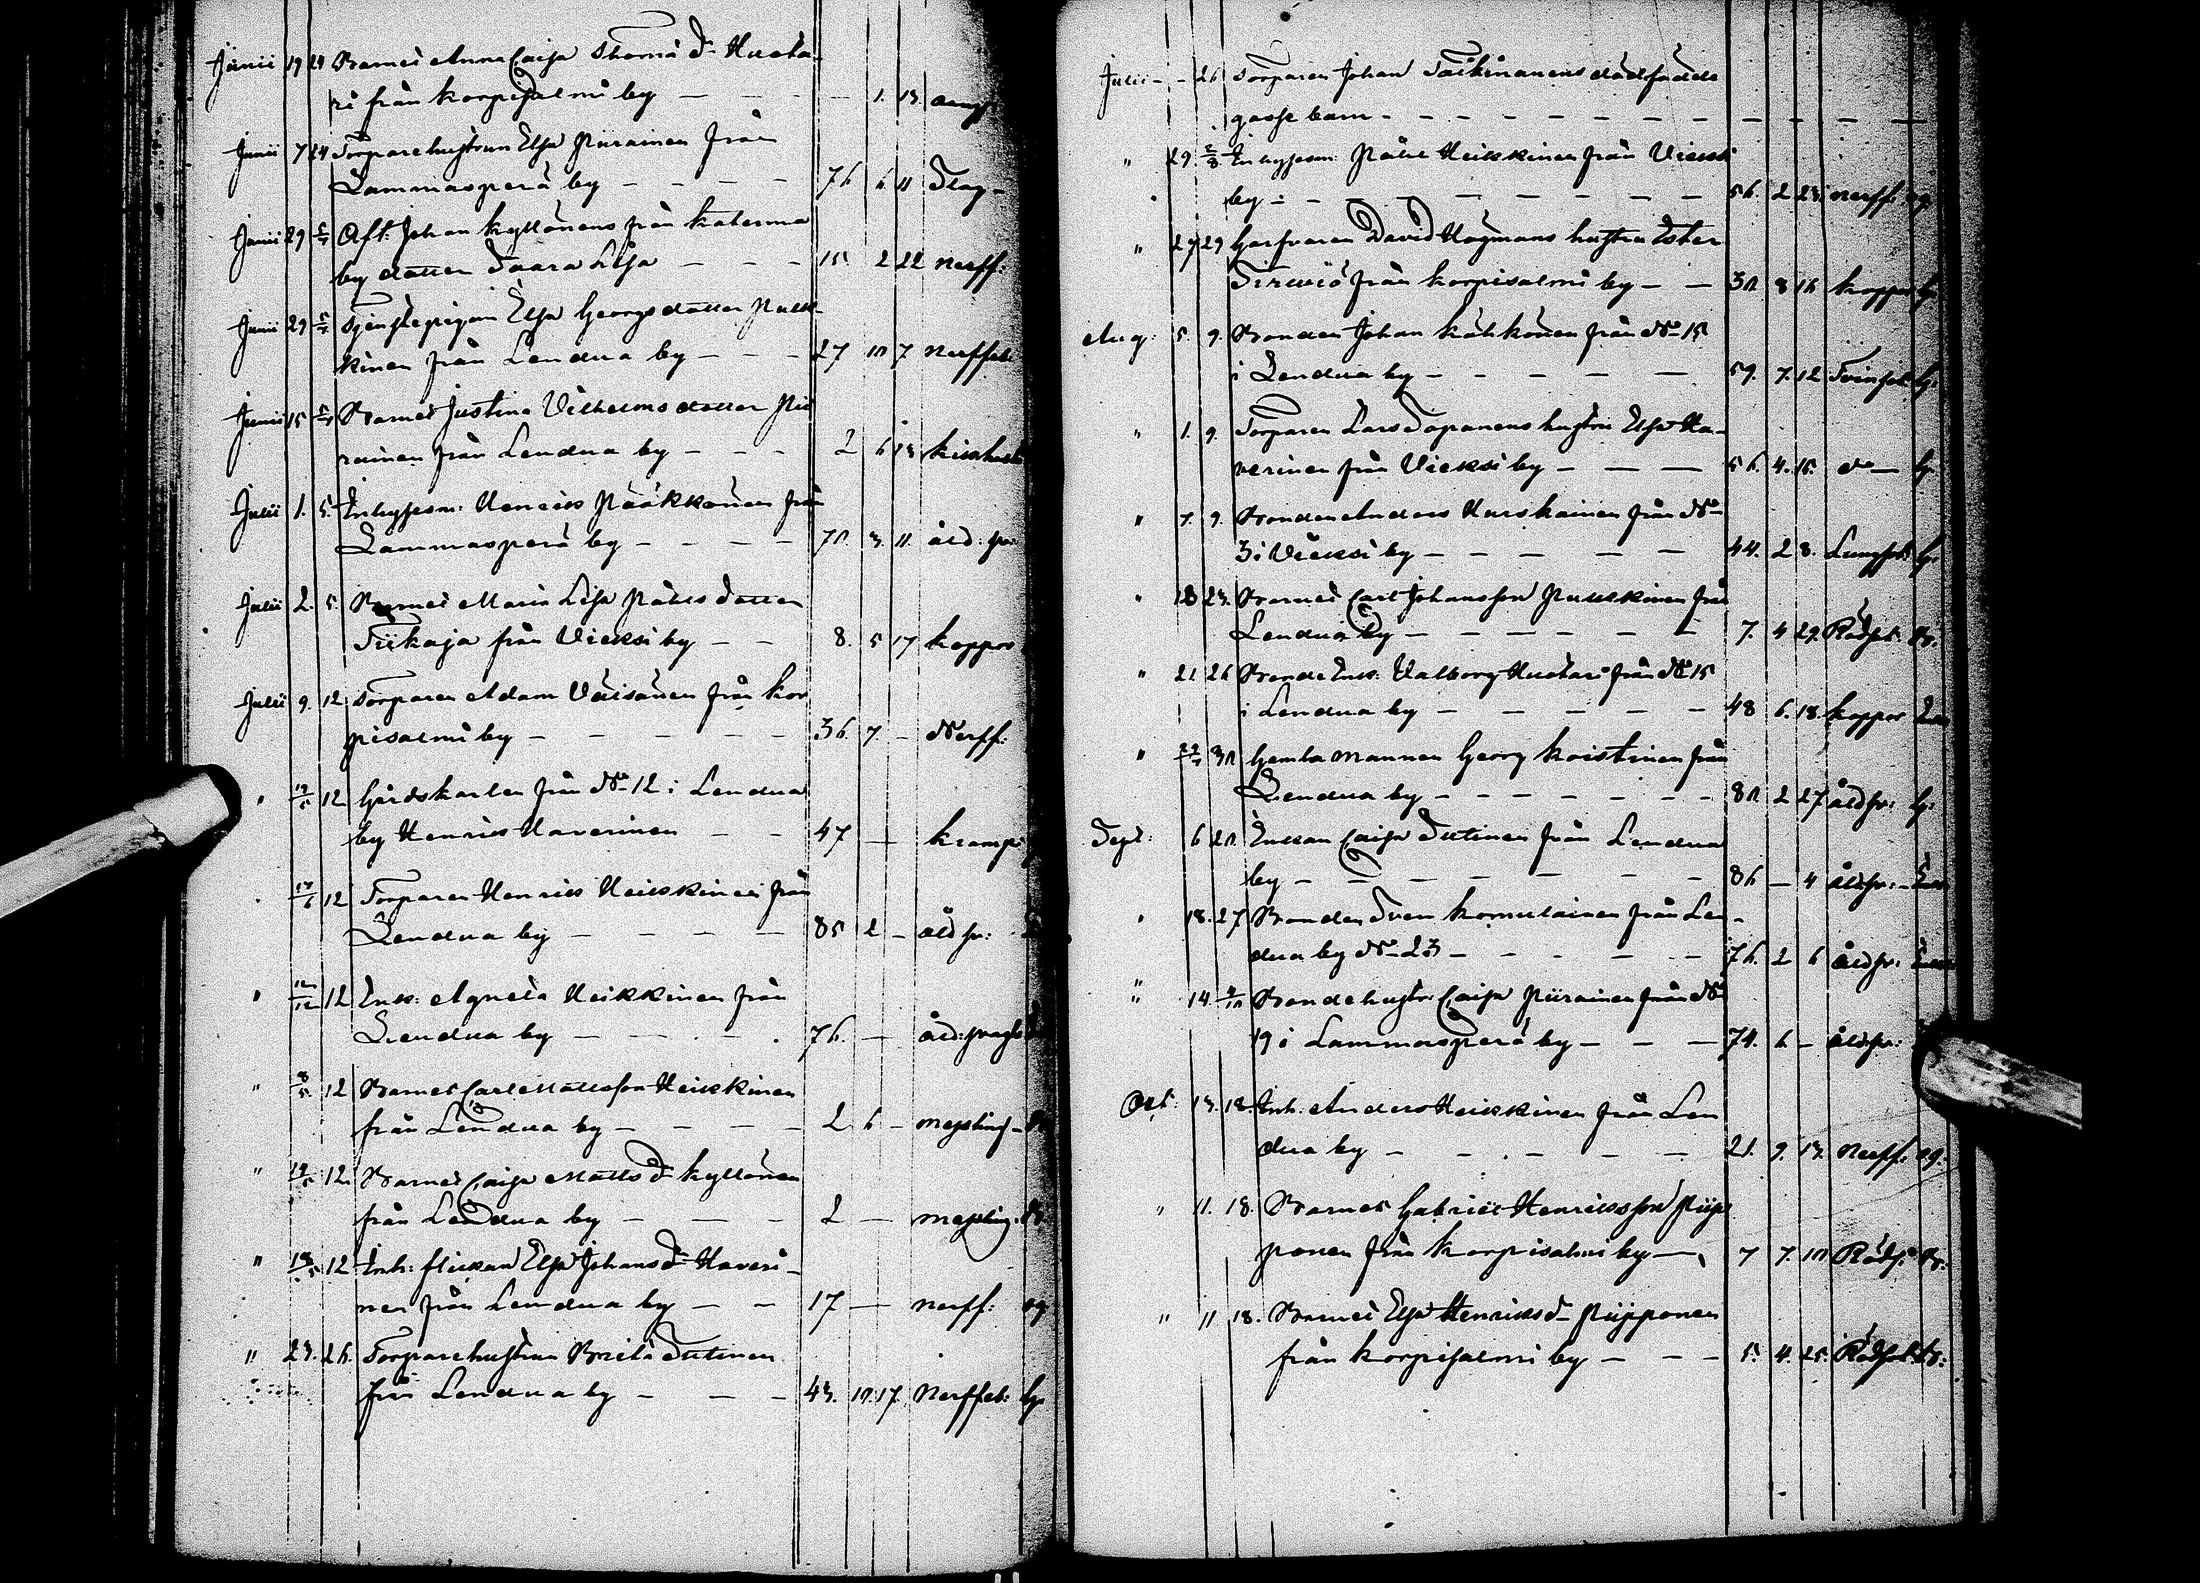 Junii 19 24 Barnet Anna Caisa Thomæ d:r Huota-
ri från Korpisalmi by — — — — 1. 13.
Junii 7 24 Torparehustrun Elsa Piirainen från
Lammasperä by — — — — 76 6 11 Slag
Junii 29 Aft: Johan Kyllönens från Katerma
by dotter Saara Lisa — — — 15 2 22 Nerff:
Junii 29 Tjenstepigan Elsa Georgsdotter Pulk-
kinen från Lendua by — — — 27 10 7 Nerffeb
Junii 15 Barnet Justina Vilhelmsdotter Pii
rainen från Lendua by — — — 2 6 13 kikhosta
Julii 1. 5. Inhysesm: Henrik Pääkkönen från
Lammasperä by — — — — 70. 3. 11. åld:
Julii 2. 5. Barnet Maria Lisa Påhlsdotter
Tiikaja från Vieksi by — — 8. 5 17 koppor
Julii 9. 12 Torparen Adam Väisänen från Kor
pisalmi by — — — — — 36 7. — Nerff:
" 12 Gårdskarlen från N:o 12 i Lendua
by Henrik Haverinen — — 47 — kramp
" 12 Torparen Henrik Heikkinen från
Lendua by — — — — 85 2 — åldr:
" 12 Enk: Agneta Heikkinen från
Lendua by — — — — 76. —
" 12 Barnet Carl Mattsson Heikkinen
från Lendua by — — — — 2 6 — messling
" 12. Barnet Caisa Matts d:r Kyllönen
från Lendua by — — — 2 — messling.
" 12 Inh: flickan Elsa Johans d:r Haveri-
nen från Lendua by — — 17 — nerff:
" 23. 26. Torparehustrun Brita Sutinen
från Lendua by — — — 43. 10. 17. Nerffeb:
Julii — 26 Torparen Johan Taikinanens dödfödde
gosse barn — — — — — — — —
" 29 Inhysesm: Påhl Heikkinen från Vieksi
by — — — — — — 56. 2 23. nerff:
" 27 29 Garfvaren David Hagmans hustru Ester
Tirkviö från Korpisalmi by — — 30. 8 16 koppor
Aug: 5. 9. Bonden Johan Kähkönen från N:o 15
i Lendua by — — — — — 59. 7. 12
" 1. 9. Torparen Lars Sopanens hustru Elsa Ha-
verinen från Vieksi by — — — 56. 4. 15. d:o —
" 7. 9. Bonden Anders Hurskainen från N:o
3 i Vieksi by — — — — — 44. 2 8. Lungsot:
" 18 23. Barnet Carl Johansson Pulkkinen från
Lendua by — — — — — — 7. 4 29. Rödsot:
" 21 26 Bonde Enk: Valborg Huotari från N:o 15
i Lendua by — — — — — 48 6. 18. koppor
" 30 Gamla mannen Georg Koistinen från
Lendua by — — — — — — 80 2 27 åldr:
Sept: 6 20. Enkan Caisa Sutinen från Lendua
by — — — — — — — 86 — 4 åldr:
" 18. 27. Bonden Sven Komulainen från Len-
dua by N:o 23 — — — — 76. 2 6 åldr:
" 14. Bondehustr: Caisa Piirainen från N:o
19 i Lammasperä by — — — 74. 6 — åldr:
Oct: 13. 18. Inh: Anders Heikkinen från Len
dua by — — — — — 21. 9. 13. Nerff:
" 11. 18. Barnet Gabriel Henriksson Piip
ponen från Korpisalmi by — 7 7. 10 Rödsot:
" 11 18. Barnet Elsa Henriks d:r Piipponen
från Korpisalmi by — — — 5. 4. 25. Rödsot: